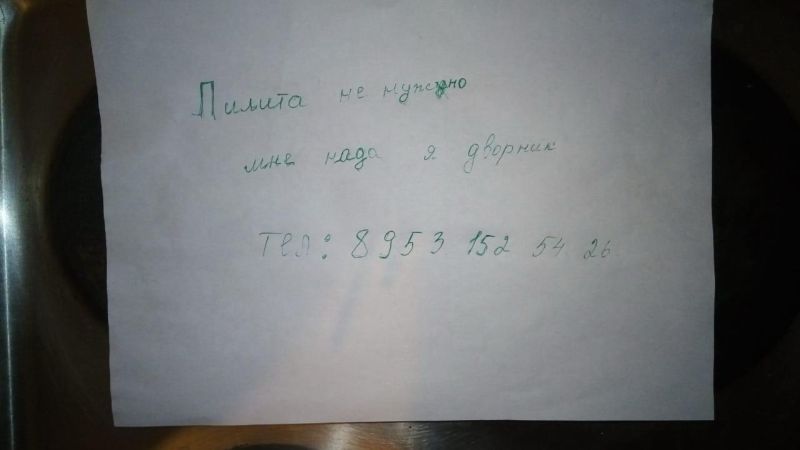 Пилита не нужно
мне нада я дворник
Тел: 8953 152 54 26